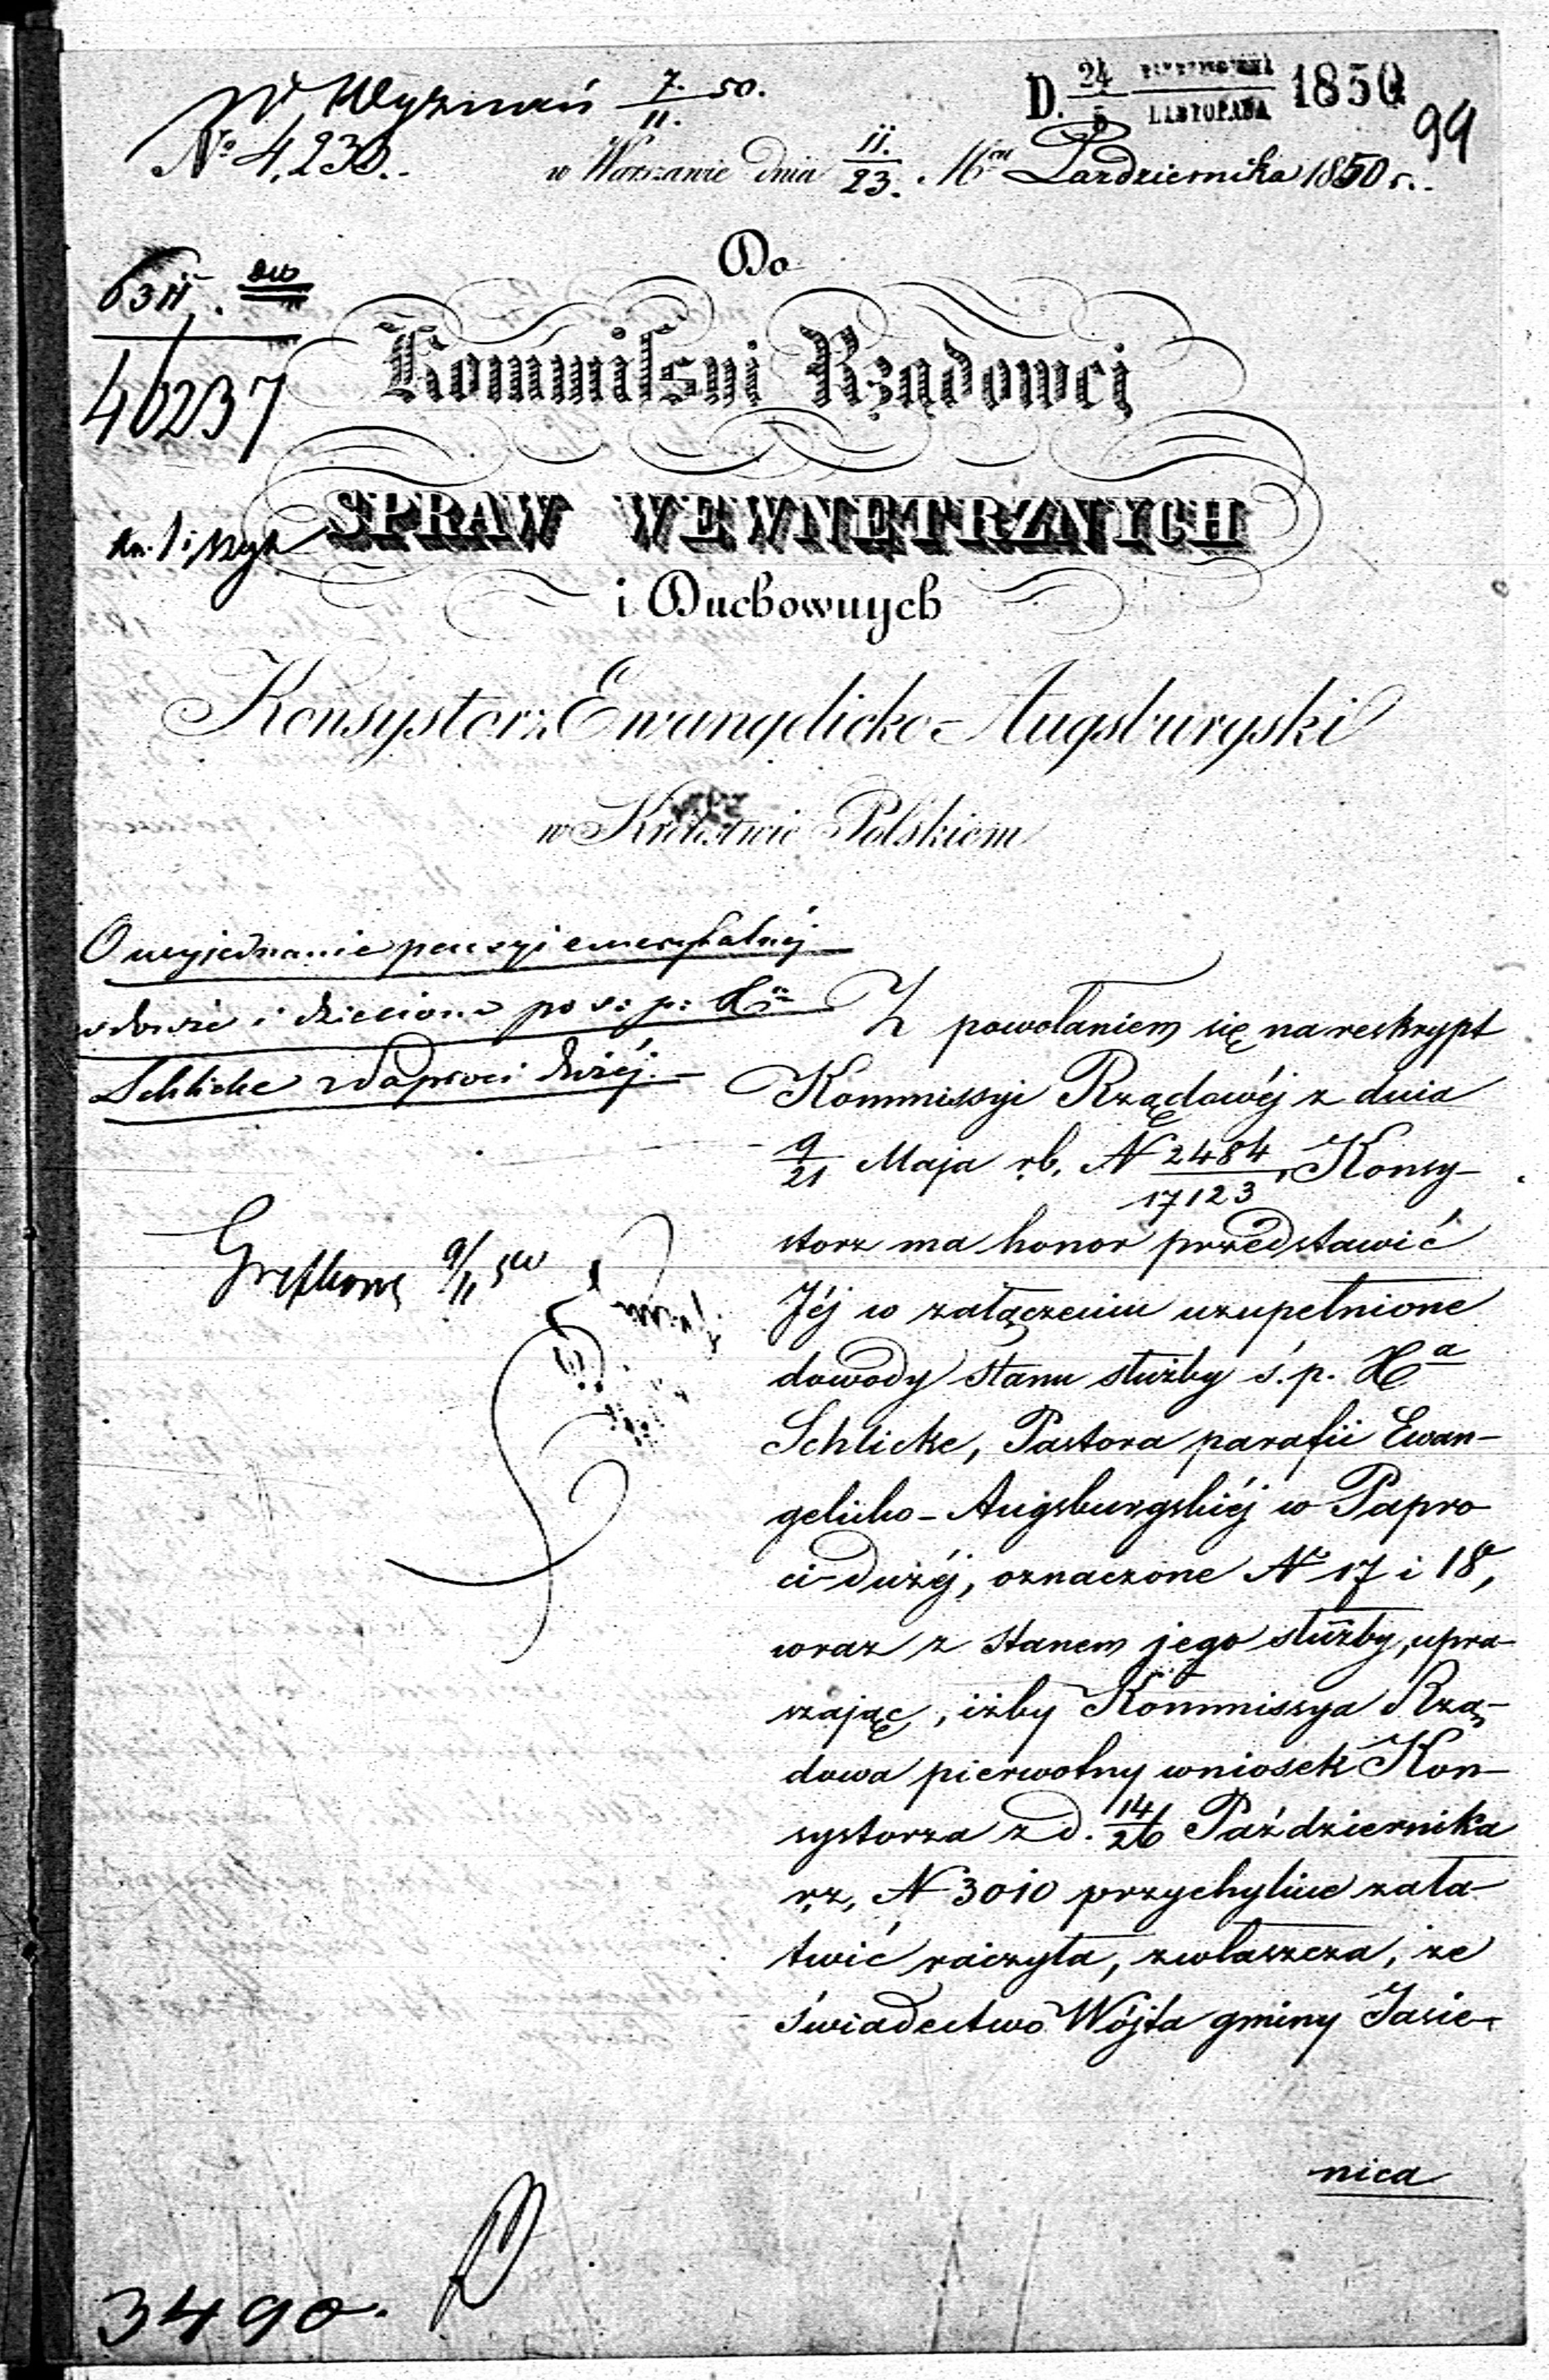 W Wyznań 7./11. 50.
D. 24/5 PAŹDZIERNIKA/LISTOPADA 1850
99
№ 4,230.
w Warszawie dnia 11./23. Mca Pazdziernika 1850 r.
Do
Kommissyi Rządowej
46237
SPRAW WEWNĘTRZNYCH
i Duchownych
Konsystorz Ewangelicko-Augsburgski
w Królestwie Polskiem
O wyjednanie pensyi emerytalnéj
wdowie i dzieciom po ś: p: Xdu
Schlicke z Paproci Dużéj.
Z powołaniem się na reskrypt
Kommissyi Rządowéj z dnia
9/21 Maja r.b. N 2484/17123, Konsy-
storz ma honor przedstawić
Jéj w załączeniu uzupełnione
dowody stanu służby ś. p. Xa
Schlicke, Pastora parafii Ewan-
gelicko-Augsburgskiéj w Papro
ci-Dużéj, oznaczone N 17 i 18,
wraz z stanem jego służby, upra-
szając, iżby Kommissya Rzą-
dowa pierwotny wniosek Kon-
systorza z d. 14/26 Października
r.z. N 3010 przychylnie zała-
twić raczyła, zwłaszcza, że
świadectwo Wójta gminy Jasie-
nica
3490.